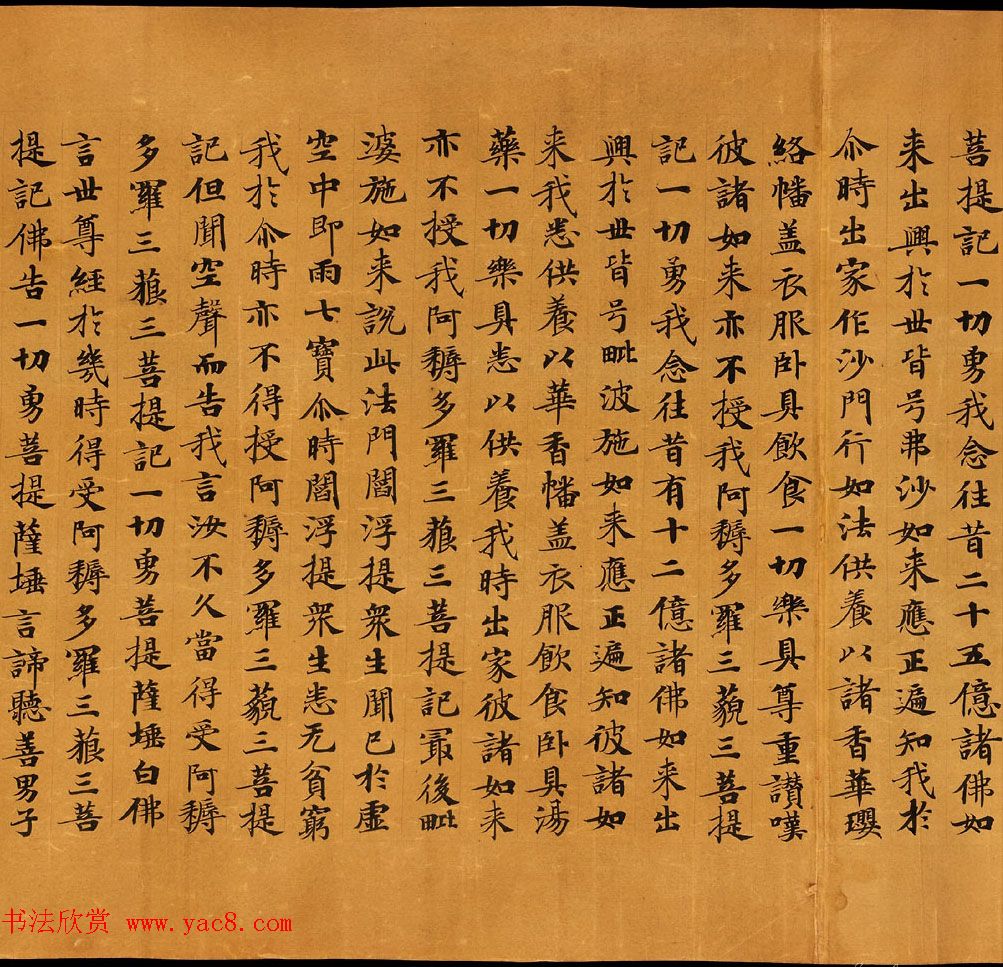 菩提記一切勇我念往昔二十五億諸佛如
来出興於世皆号弗沙如来應正遍知我於
尒時出家作沙門行如法供養以諸香華瓔
絡幡盖衣服卧具飲食一切樂具尊重讃嘆
彼諸如来亦不授我阿耨多羅三藐三菩提
記一切勇我念往昔有十二億諸佛如来出
興於世皆号毗波施如来應正遍知彼諸如
来我悉供養以華香幡盖衣服飲食卧具湯
藥一切樂具悉以供養我時出家彼諸如来
亦不授我阿耨多羅三藐三菩提記冣後毗
婆施如来説此法門閻浮提衆生聞已於虛
空中即雨七寶尒時閻浮提衆生悉无貧窮
我於尒時亦不得授阿耨多羅三藐三菩提
記但聞空聲而告我言汝不久當得受阿耨
多羅三藐三菩提記一切勇菩提薩埵白佛
言世尊經於幾時得受阿耨多羅三藐三菩
提記佛告一切勇菩提薩埵言諦聽善男子
书法欣赏 www.yac8.com